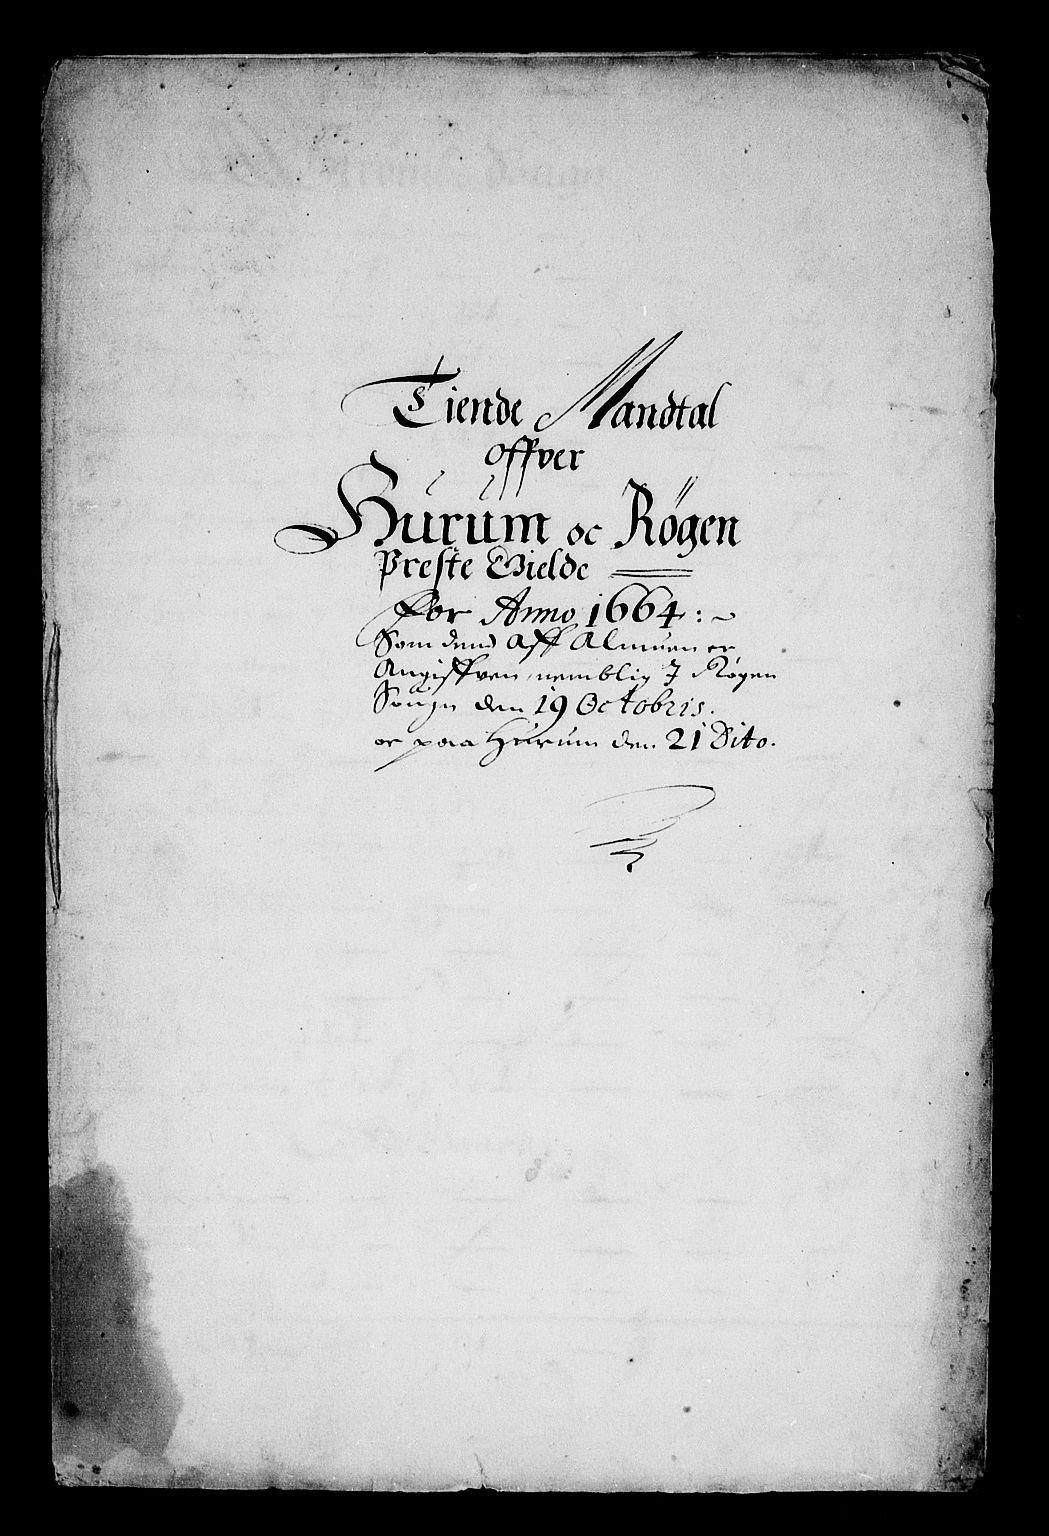 Tiende Mandtal
offver
Hurum oc Røgen
Preste Gielde
for Anno 1664:~
Som dend Aff Almuen er
Angiffven, nemblig J Røgen
Sougn den 19 Octobris.
oc paa Hurum den 21 Dito.